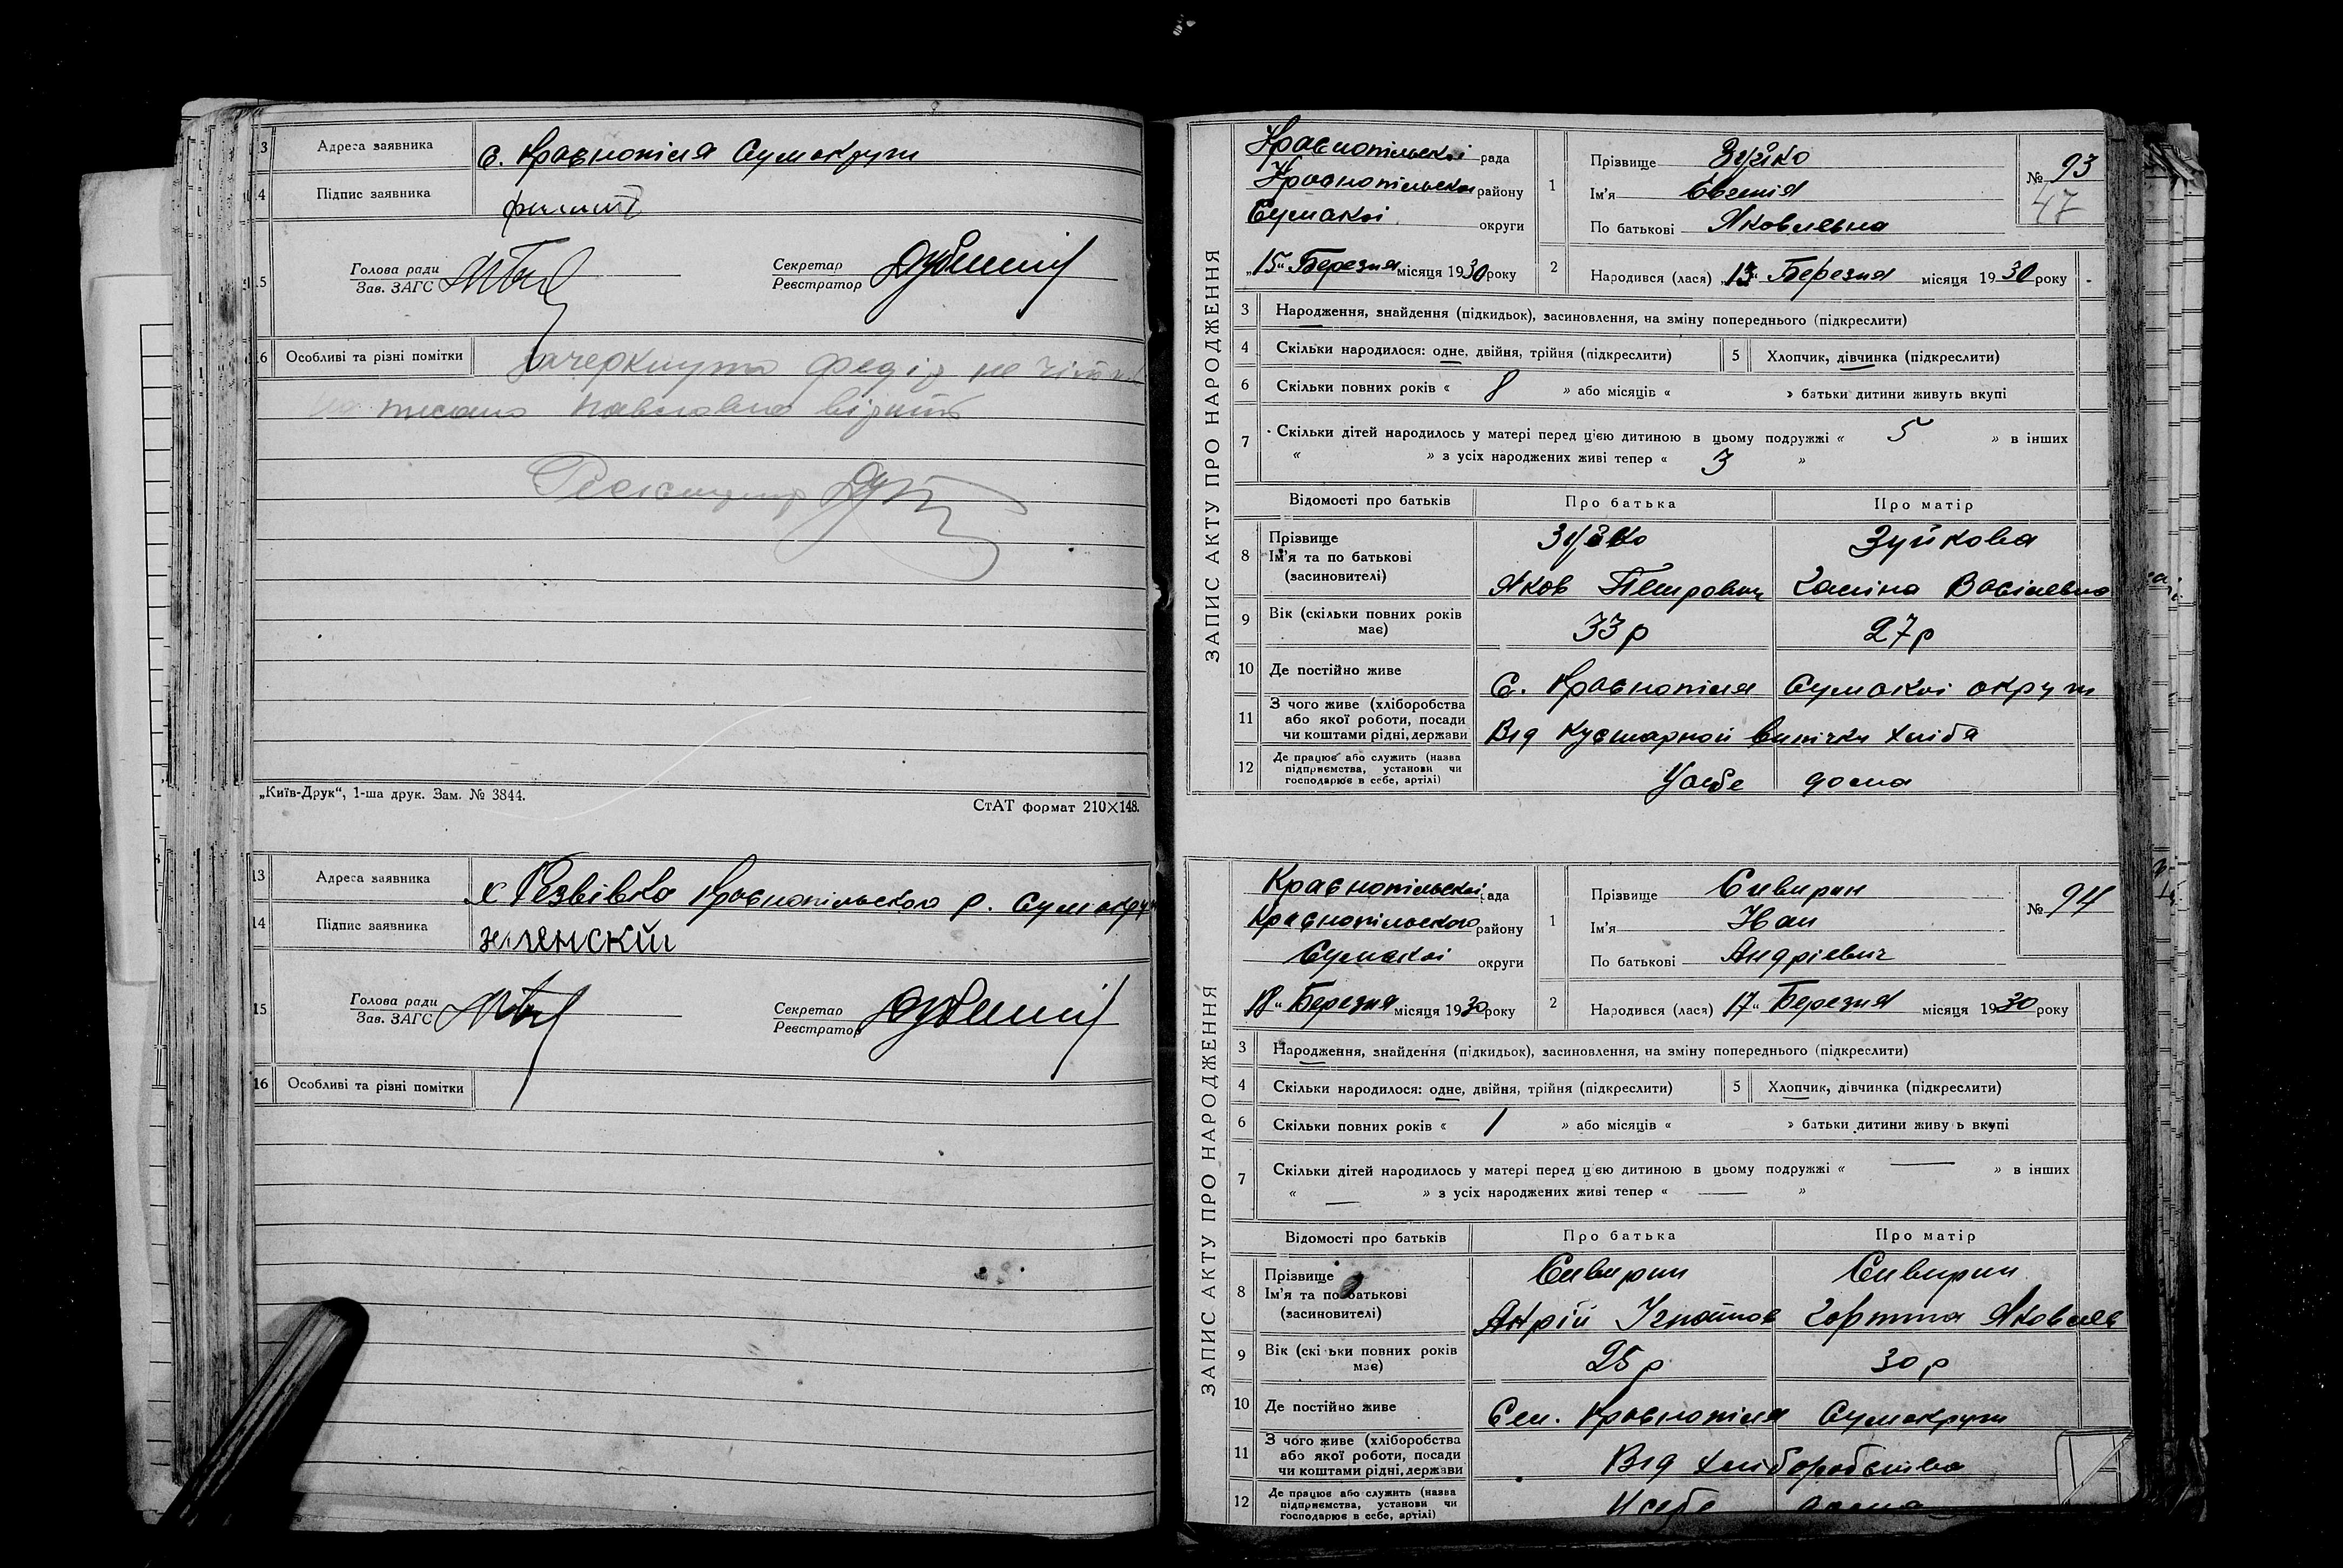 13 Адреса заявника с. Краснопілля Сумокруги
14 Підпис заявника
15 Голова ради
Зав. ЗАГС
Секретар
Реєстратор
16 Особливі та різні помітки Зачеркнуто Федір не
писано Павловна вірить
Реєстратор
„Київ-Друк“, 1-ша друк. Зам. № 3844.
СтАТ формат 210×148.
13 Адреса заявника х Резвівка Краснопільского р. Сумокруги
14 Підпис заявника зиленскій
15 Голова ради
Зав. ЗАГС
Секретар
Реєстратор
16 Особливі та різні помітки
ЗАПИС АКТУ ПРО НАРОДЖЕННЯ
Краснопільскоі рада
Краснопільского району
Сумскоі округи
„15“ Березня місяця 1930 року
1 Прізвище Зуйко
Ім'я Євгенія
По батькові Яковлевна
№ 93
47
2 Народився (лася) „13“ Березня місяця 1930 року
3 Народження, знайдення (підкидьок), засиновлення, на зміну попереднього (підкреслити)
4 Скільки народилося: одне, двійня, трійня (підкреслити) 5 Хлопчик, дівчинка (підкреслити)
6 Скільки повних років « 8 » або місяців « » батьки дитини живуть вкупі
7 Скільки дітей народилось у матері перед цією дитиною в цьому подружжі « 5 » в інших
« » з усіх народжених живі тепер « 3 »
Відомості про батьків Про батька Про матір
8 Прізвище Зуйко Зуйкова
Ім'я та по батькові
(засиновителі) Яков Петрович Галина Васілевна
9 Вік (скільки повних років має) 33 р 27 р
10 Де постійно живе С. Краснопілля Сумскоі округи
11 З чого живе (хліборобства
або якої роботи, посади
чи коштами рідні, держави Від кустарной випічки хліба
12 Де працює або служить (назва
підприємства, установи чи
господарює в себе, артілі) У себе дома
ЗАПИС АКТУ ПРО НАРОДЖЕННЯ
Краснопільскоі рада
Краснопільского району
Сумскоі округи
18“ Березня місяця 1930 року
1 Прізвище Сивирин
Ім'я Иван
По батькові Андріевич
№ 94
2 Народився (лася) 17“ Березня місяця 1930 року
3 Народження, знайдення (підкидьок), засиновлення, на зміну попереднього (підкреслити)
4 Скільки народилося: одне, двійня, трійня (підкреслити) 5 Хлопчик, дівчинка (підкреслити)
6 Скільки повних років « 1 » або місяців « » батьки дитини живу ь вкупі
7 Скільки дітей народилось у матері перед цією дитиною в цьому подружжі « — » в інших
« — » з усіх народжених живі тепер « — »
Відомості про батьків Про батька Про матір
8 Прізвище Сивирин Сивирин
Ім'я та по батькові
(засиновителі) Анрій Ігнатов Яковлев
9 Вік (скі ьки повних років
має) 25 р 30 р
10 Де постійно живе Сел. Краснопілля Сумокруги
11 З чого живе (хліборобства
або якої роботи, посади
чи коштами рідні, держави Від хлиборобства
12 Де працює або служить (назва
підприємства, установи чи
господарює в себе, артілі) У себе дома